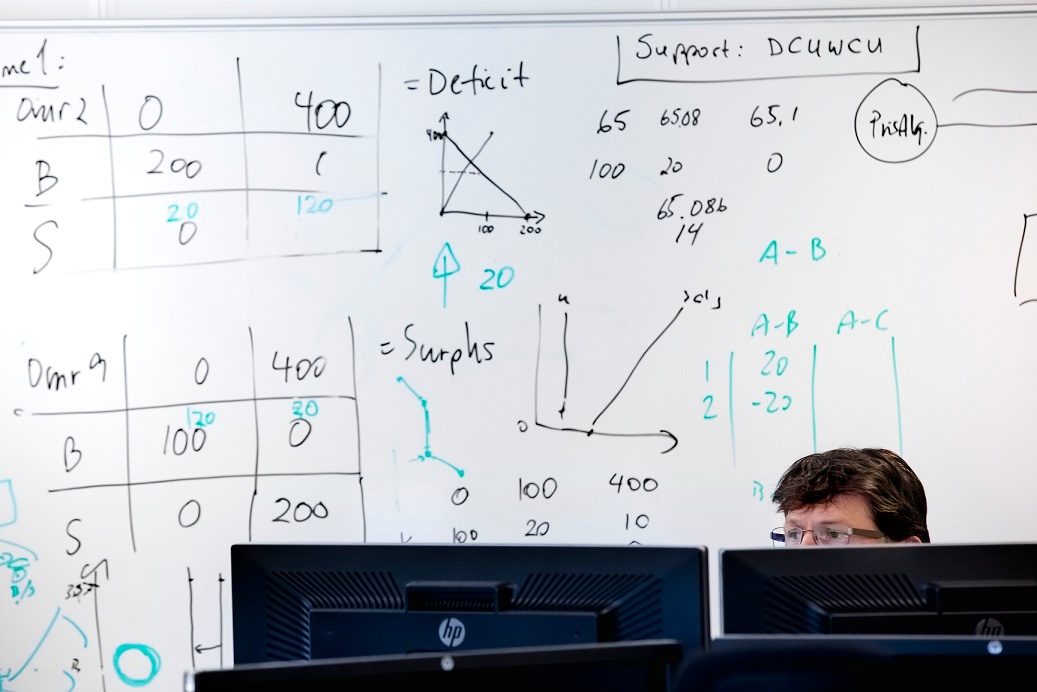 me1:
Omr2 0 400
B 200
20 120
S 0
= Deficit
400
100 200
20
Support: DCUWCU
65 65.08 65.1
100 20 0
65.086
14
PrisAlg.
A-B
A-B A-C
1 20
2 -20
B
Omr 0 400
120 20
B 100 0
S 0 200
= Surplus
0
0 100 400
100 20 10
hp
hp